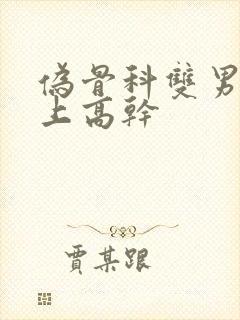 偽骨科雙男
上高幹
賈某跟